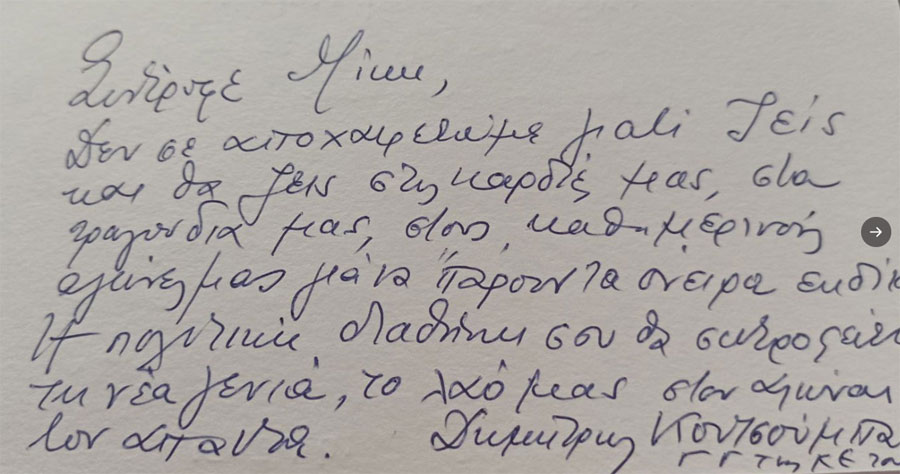 Σύντροφε Μίκη,
Δεν σε αποχαιρετάμε γιατί ζεις
και θα ζεις στις καρδιές μας, στα
τραγούδια μας, στους καθημερινούς
αγώνες μας για να "πάρουν τα όνειρα εκδίκ
Η πολιτική διαθήκη σου θα συντροφεύει
τη νέα γενιά, το λαό μας στον αγώνα
τον απαντα.
Δημήτρης Κουτσούμπα
ΓΓ της ΚΕ του